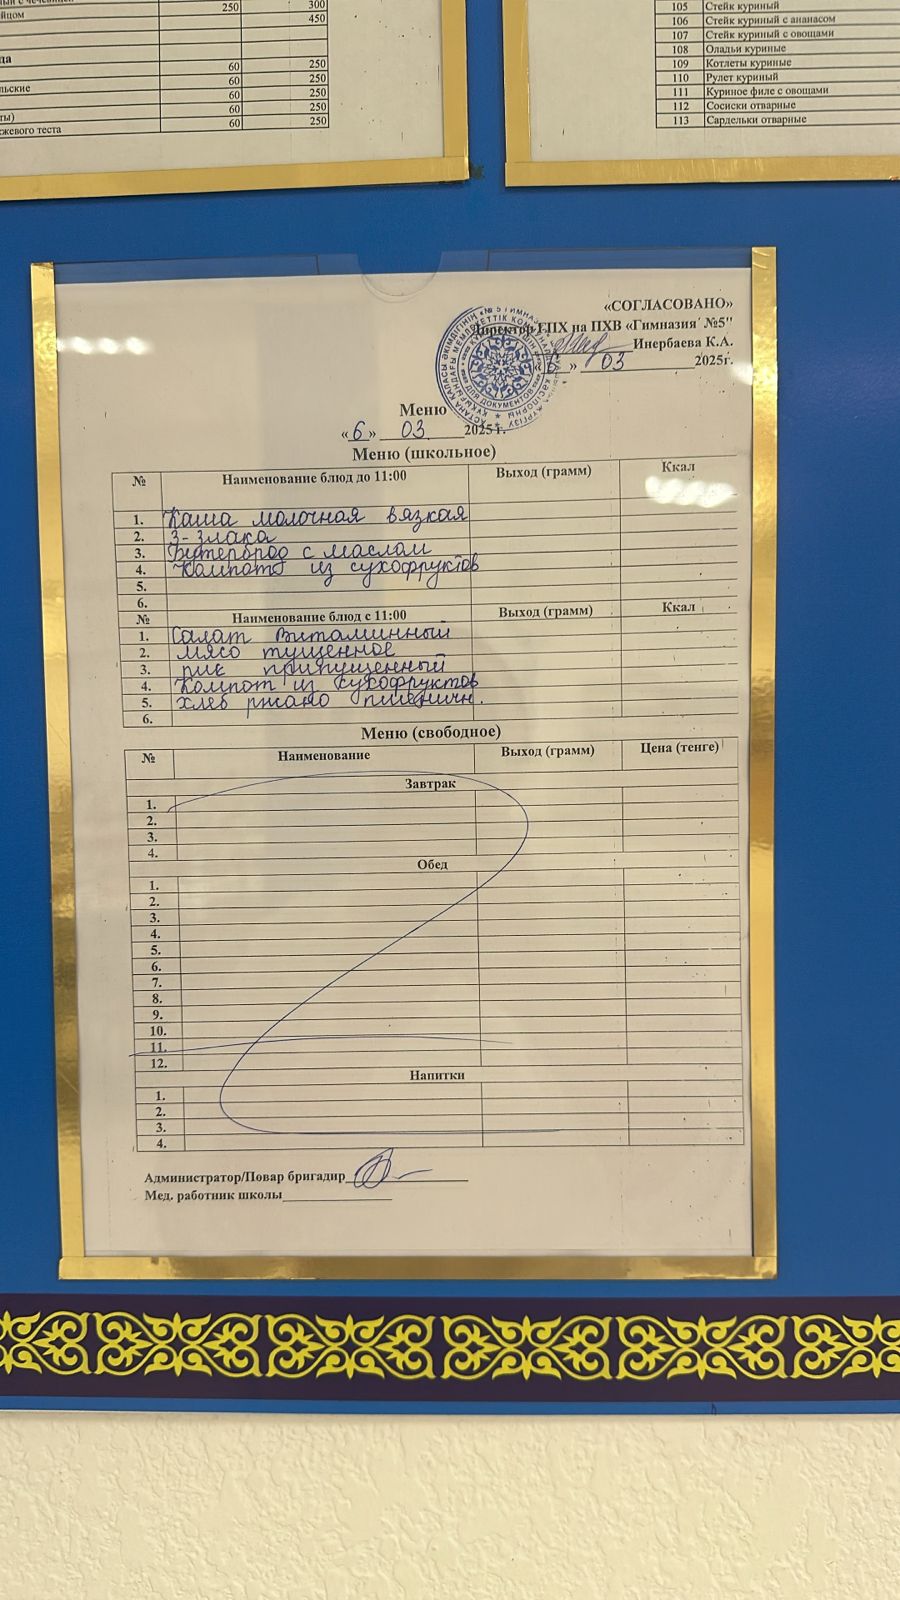 ный с чечевицей 250 300
йцом 450
да
60 250
льские 60 250
60 250
ты) 60 250
жевого теста 60 250
105 Стейк куриный
106 Стейк куриный с ананасом
107 Стейк куриный с овощами
108 Оладьи куриные
109 Котлеты куриные
110 Рулет куриный
111 Куриное филе с овощами
112 Сосиски отварные
113 Сардельки отварные
«СОГЛАСОВАНО»
Директор ГПХ на ПХВ «Гимназия №5"
Инербаева К.А.
«6» 03 2025г.
Меню
«6» 03 2025 г.
Меню (школьное)
№ Наименование блюд до 11:00 Выход (грамм) Ккал
1. Каша молочная вязкая
2. 3-злака
3. Бутерброд с маслом
4. Компот из сухофруктов
5.
6.
№ Наименование блюд с 11:00 Выход (грамм) Ккал
1. Салат Витаминный
2. мясо тушенное
3. рис припущенный
4. Компот из сухофруктов
5. хлеб ржано пшеничн.
6.
Меню (свободное)
№ Наименование Выход (грамм) Цена (тенге)
Завтрак
1.
2.
3.
4.
Обед
1.
2.
3.
4.
5.
6.
7.
8.
9.
10.
11.
12.
Напитки
1.
2.
3.
4.
Администратор/Повар бригадир
Мед. работник школы